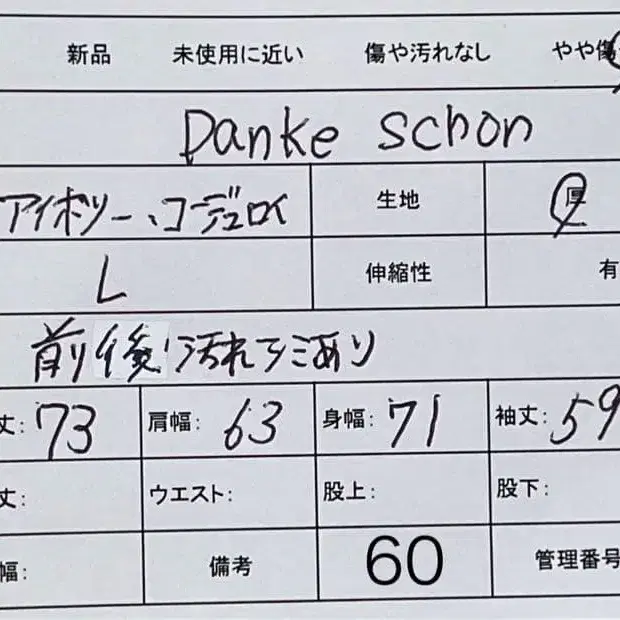 新品 未使用に近い 傷や汚れなし やや傷
Danke schon
アイボリー、コーデュロイ 生地 厚
L 伸縮性 有
前後汚れシミあり
丈: 73 肩幅: 63 身幅: 71 袖丈: 59
丈: ウエスト: 股上: 股下:
幅: 備考 60 管理番号